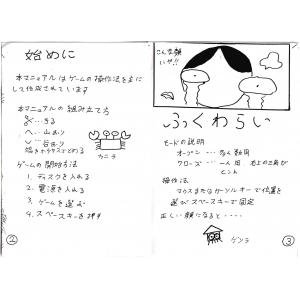 始めに
本マニュアルはゲームの操作法を主に
して作成されています
本マニュアルの組み立て方
…きる
へ…山おり
…谷おり
端をホチキスでとめる
カニラ
ゲームの開始方法
1. ディスクを入れる
2. 電源を入れる
3. ゲームを選ぶ
4. スペースキーを押す
2
こんな顔
いや!!
ふくわらい
モードの説明
オープン…多人数用
クローズ…一人用 右上の三角が
ヒント
操作法
マウスまたはカーソルキーで位置を
選びスペースキーで固定
正しい顔になると・・・・
ゲンラ
3